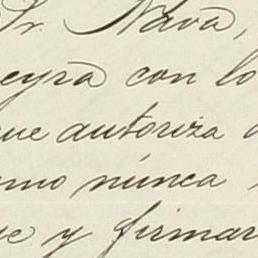 Sr. Nava,
eyra con lo
que autoriza
mo núnca
y firmar